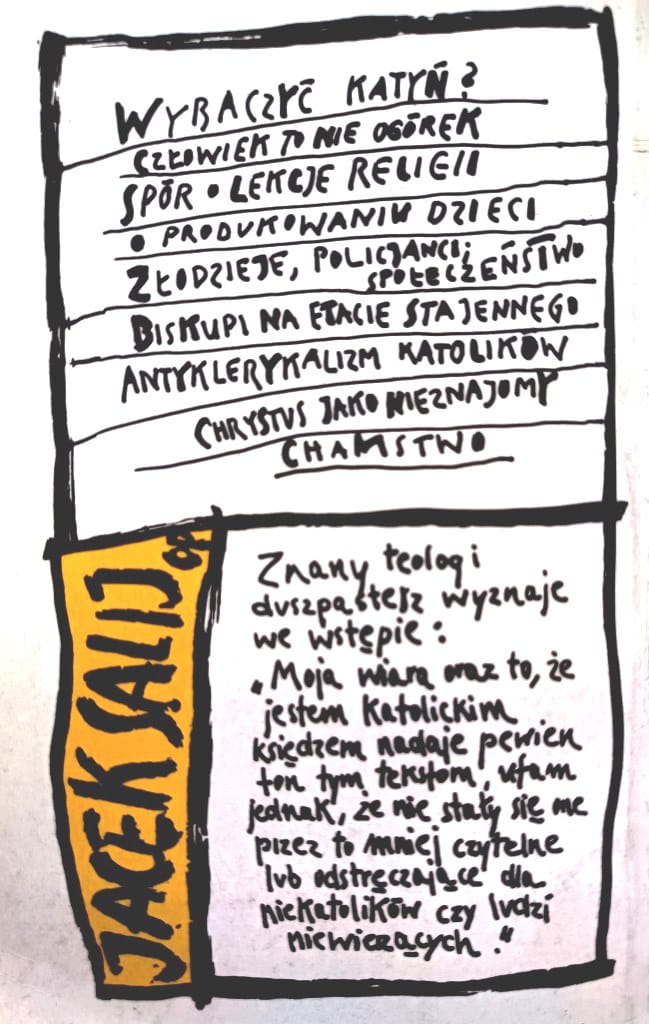 WYBACZYĆ KATYŃ?
CZŁOWIEK TO NIE OGÓREK
SPÓR O LEKCJE RELIGII
O PRODUKOWANIU DZIECI
ZŁODZIEJE, POLICJANCI,
SPOŁECZEŃSTWO
BISKUPI NA ETACIE STAJENNEGO
ANTYKLERYKALIZM KATOLIKÓW
CHRYSTUS JAKO NIEZNAJOMY
CHAMSTWO
JACEK SALIJ OP
Znany teolog i
duszpasterz wyznaje
we wstępie:
„Moja wiara oraz to, że
jestem katolickim
księdzem nadaje pewien
ton tym tekstom, ufam
jednak, że nie stały się one
przez to mniej czytelne
lub odstręczające dla
niekatolików czy ludzi
niewierzących."